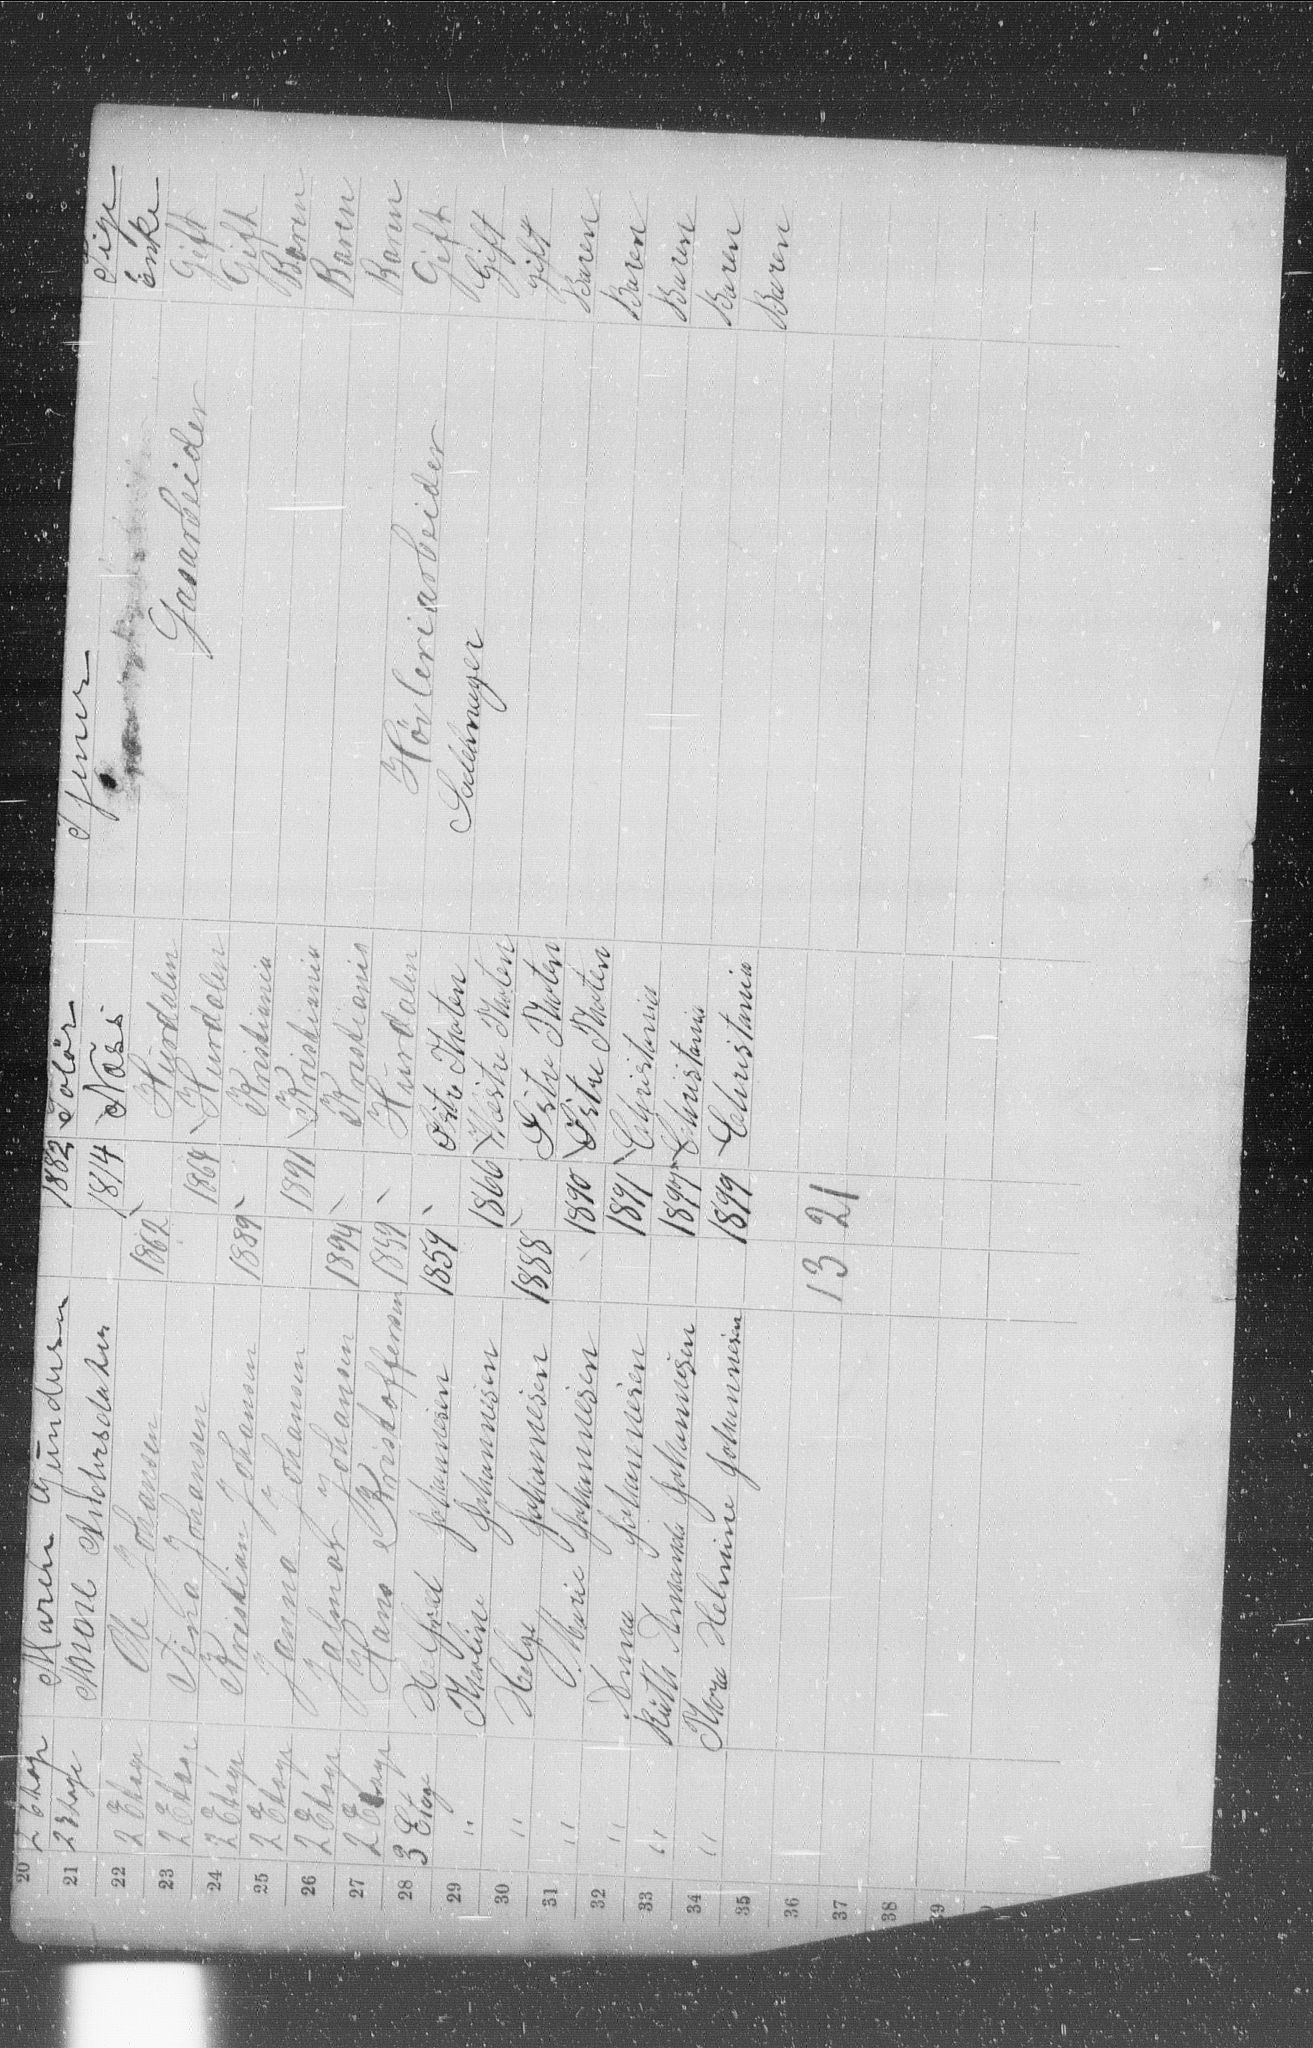 20 2 Etage Maren Gundersen 1882 Solör Tjener Pige
21 2 Etage Anne Andersdatter 1814 Næs Enke
22 2 Etage Ole Johansen 1862 Hurdalen Gasarbeider Gift
23 2 Etage Tina Johansen 1864 Hurdalen Gift
24 2 Etage Kristian Johansen 1889 Kristiania Baren
25 2 Etage Janna Johansen 1891 Kristiania Baren
26 2 Etage Jalmar Johansen 1894 Kristiania Baren
27 2 Etage Hans Kristoffersen 1839 Hurdalen Gift
28 3 Etage Johannesen 1859 Östre Thoten Hövleriarbeider Gift
29 " Johannesen 1866 Vestre Thoten gift
30 " Helga Johannesen 1888 Östre Thoten Baren
31 " Marie Johannesen 1890 Östre Thoten Baren
32 " Anna Johannesen 1891 Christania Baren
33 " Ruth Amanda Johannesen 1897 Christania Baren
34 " Thora Helmine Johannesen 1899 Christania Baren
35
36 13 21
37
38
39